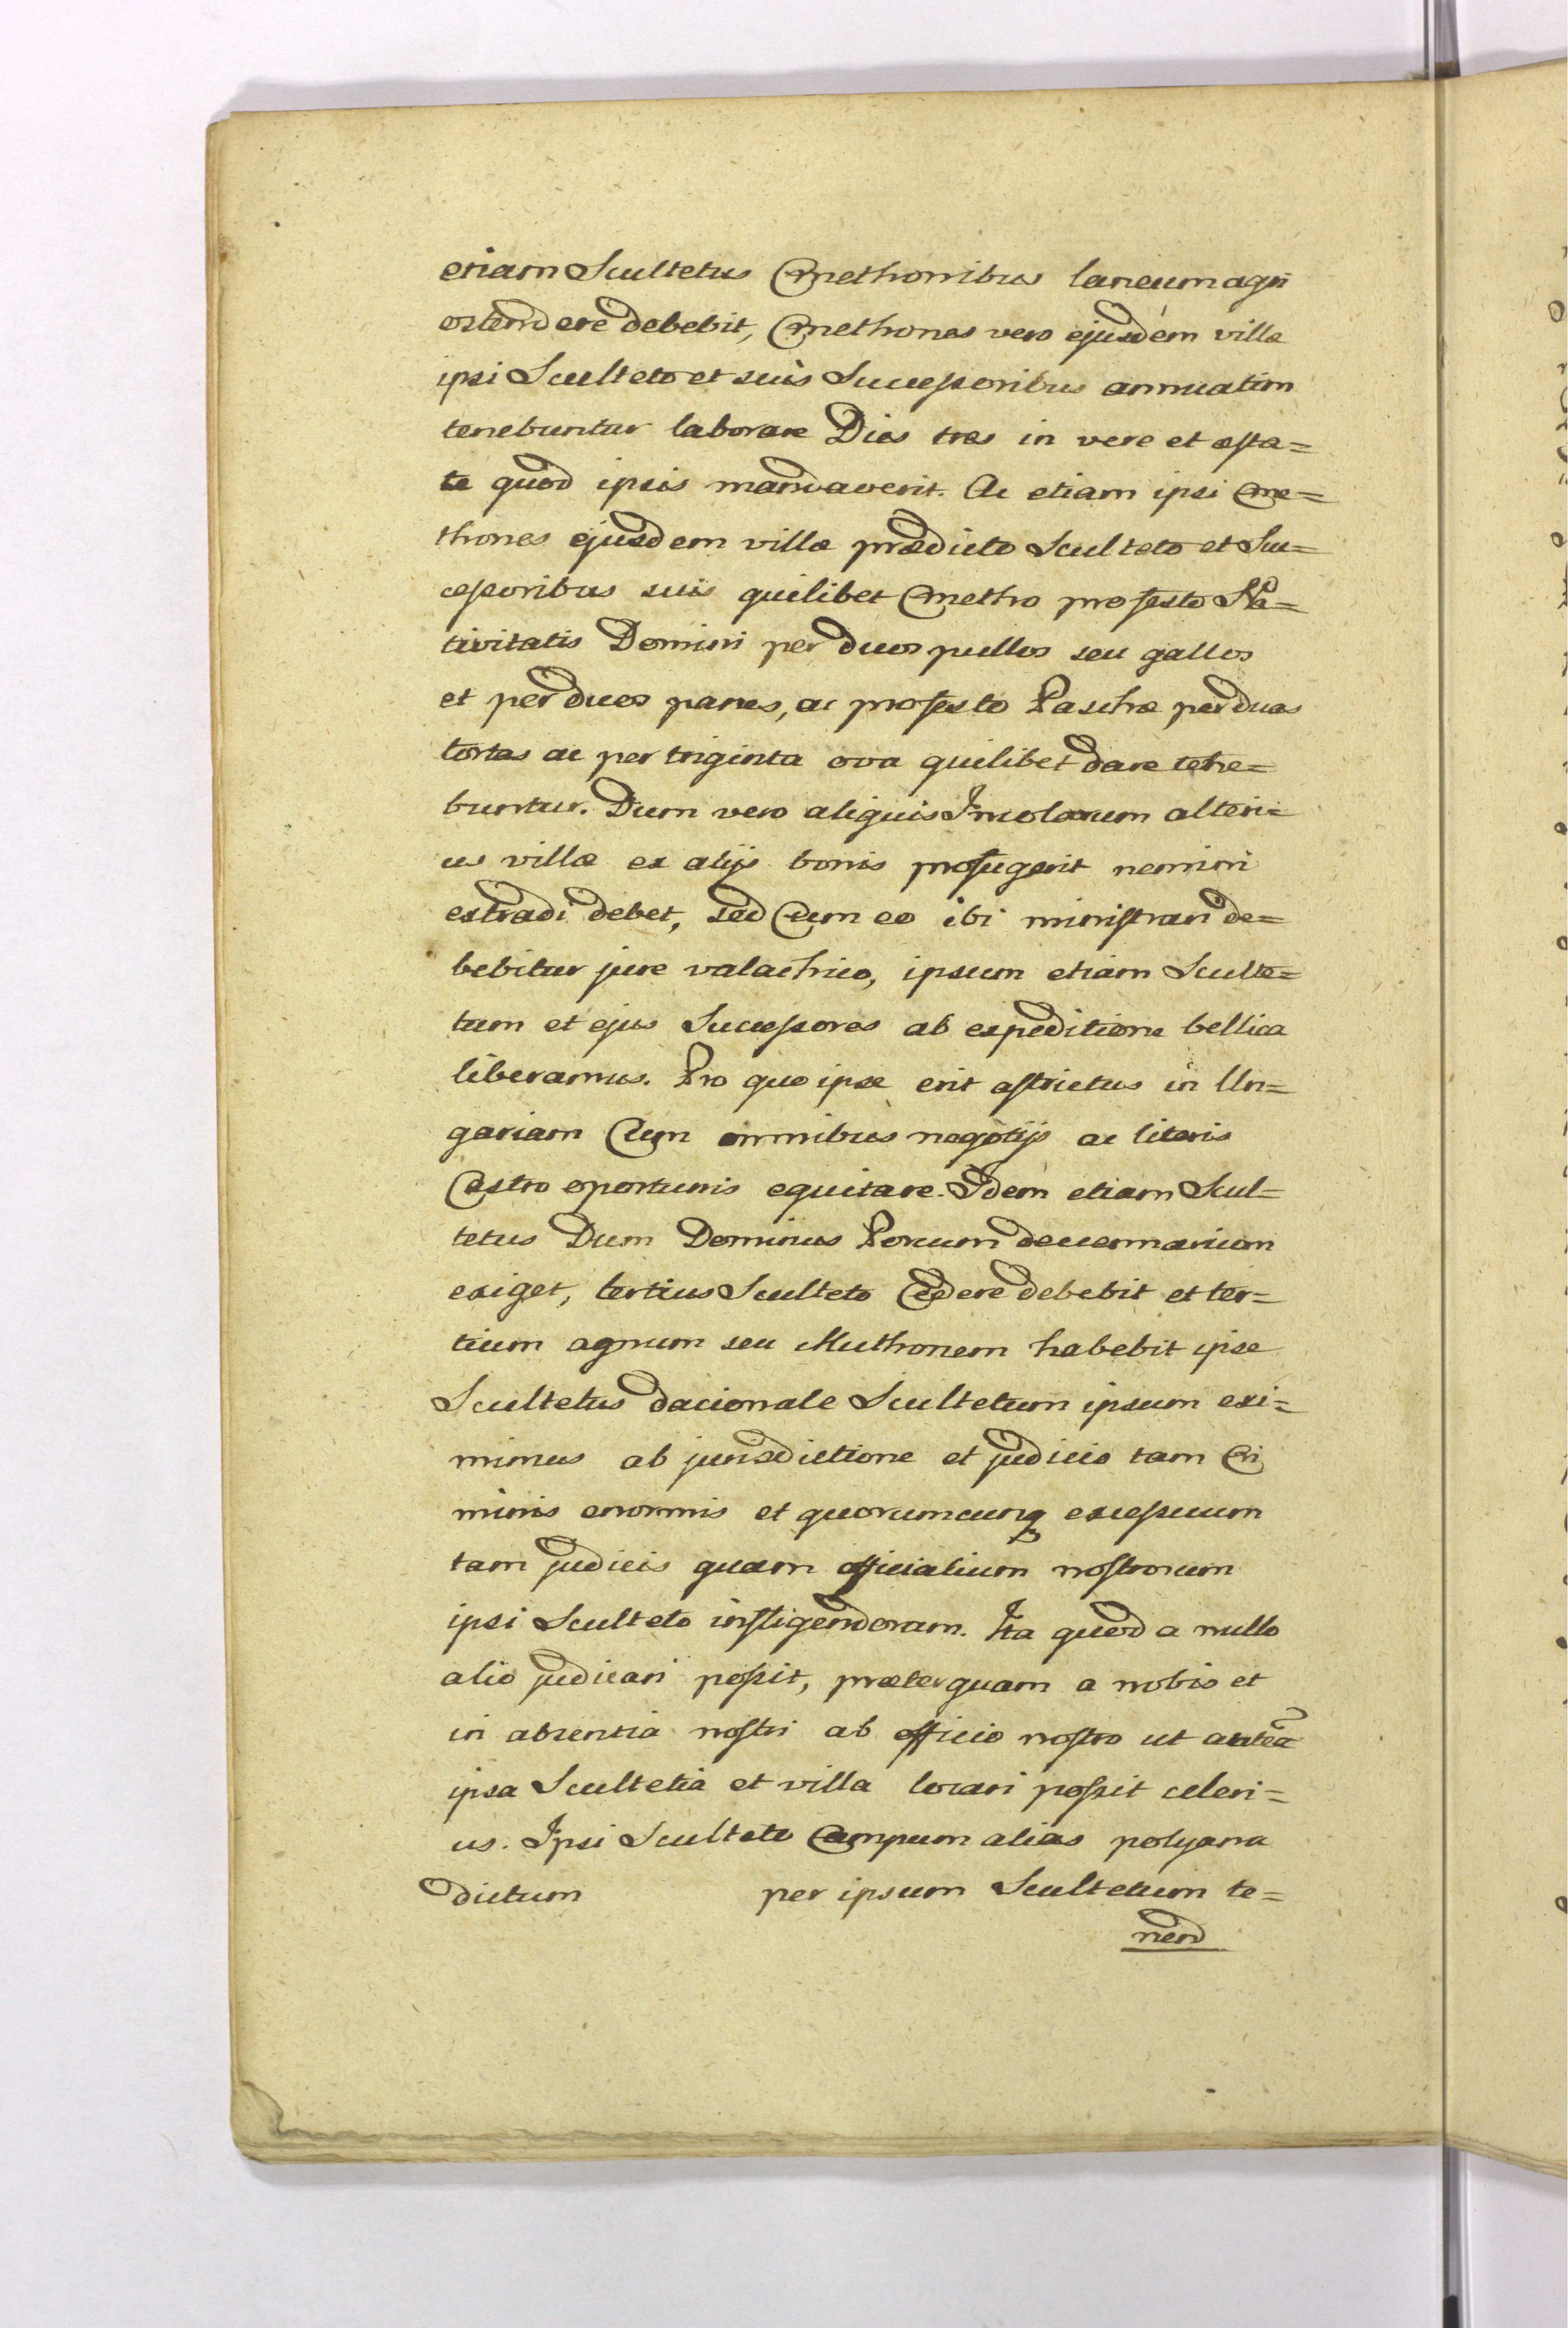 etiam Scultetus Cmethonibus laneum agri
ostendere debebit, Cmethones vero ejusdem villæ
ipsi Sculteto et suis Successoribus annuatim
tenebuntur laborare Dies tres in vere et æsta=
te quod ipsis mandaverit. Ac etiam ipsi Cme=
thones ejusdem villæ prædicto Sculteto et Suc=
cessoribus suis quilibet Cmetho pro festo Na=
tivitatis Domini per duos pullos seu gallos
et per duos panes, ac pro festo Paschæ per duas
tortas ac per triginta ova quilibet dare tene=
buntur. Dum vero aliquis Incolarum alteri=
us villæ ex alijs bonis profugerit nemini
extradi debet, sed Cum eo ibi ministrari de=
bebitur jure valachico, ipsum etiam Sculte=
tum et ejus Successores ab expeditione bellica
liberamus. Pro quo ipse erit astrictus in Un=
gariam Cum omnibus negotijs ac literis
Castro oportunis equitare. Idem etiam Scul=
tetus Dum Dominus Porcum decermarium
exiget, tertius Sculteto Cedere debebit et ter=
tium agnum seu Muthonem habebit ipse
Scultetus dacionale Scultetum ipsum exi=
mimus ab jurisdictione et judicio tam Cri
minis enormis et quorumcunq excessuum
tam judicis quam officialium nostrorum
ipsi Sculteto instigendoram. Ita quod a nullo
alio judicari possit, præterquam a nobis et
in absentia nostri ab officio nostro ut antea
ipsa Scultetia et villa locari possit celeri=
us. Ipsi Sculteto Campum alias polyana
dictum per ipsum Scultetum te=
nend